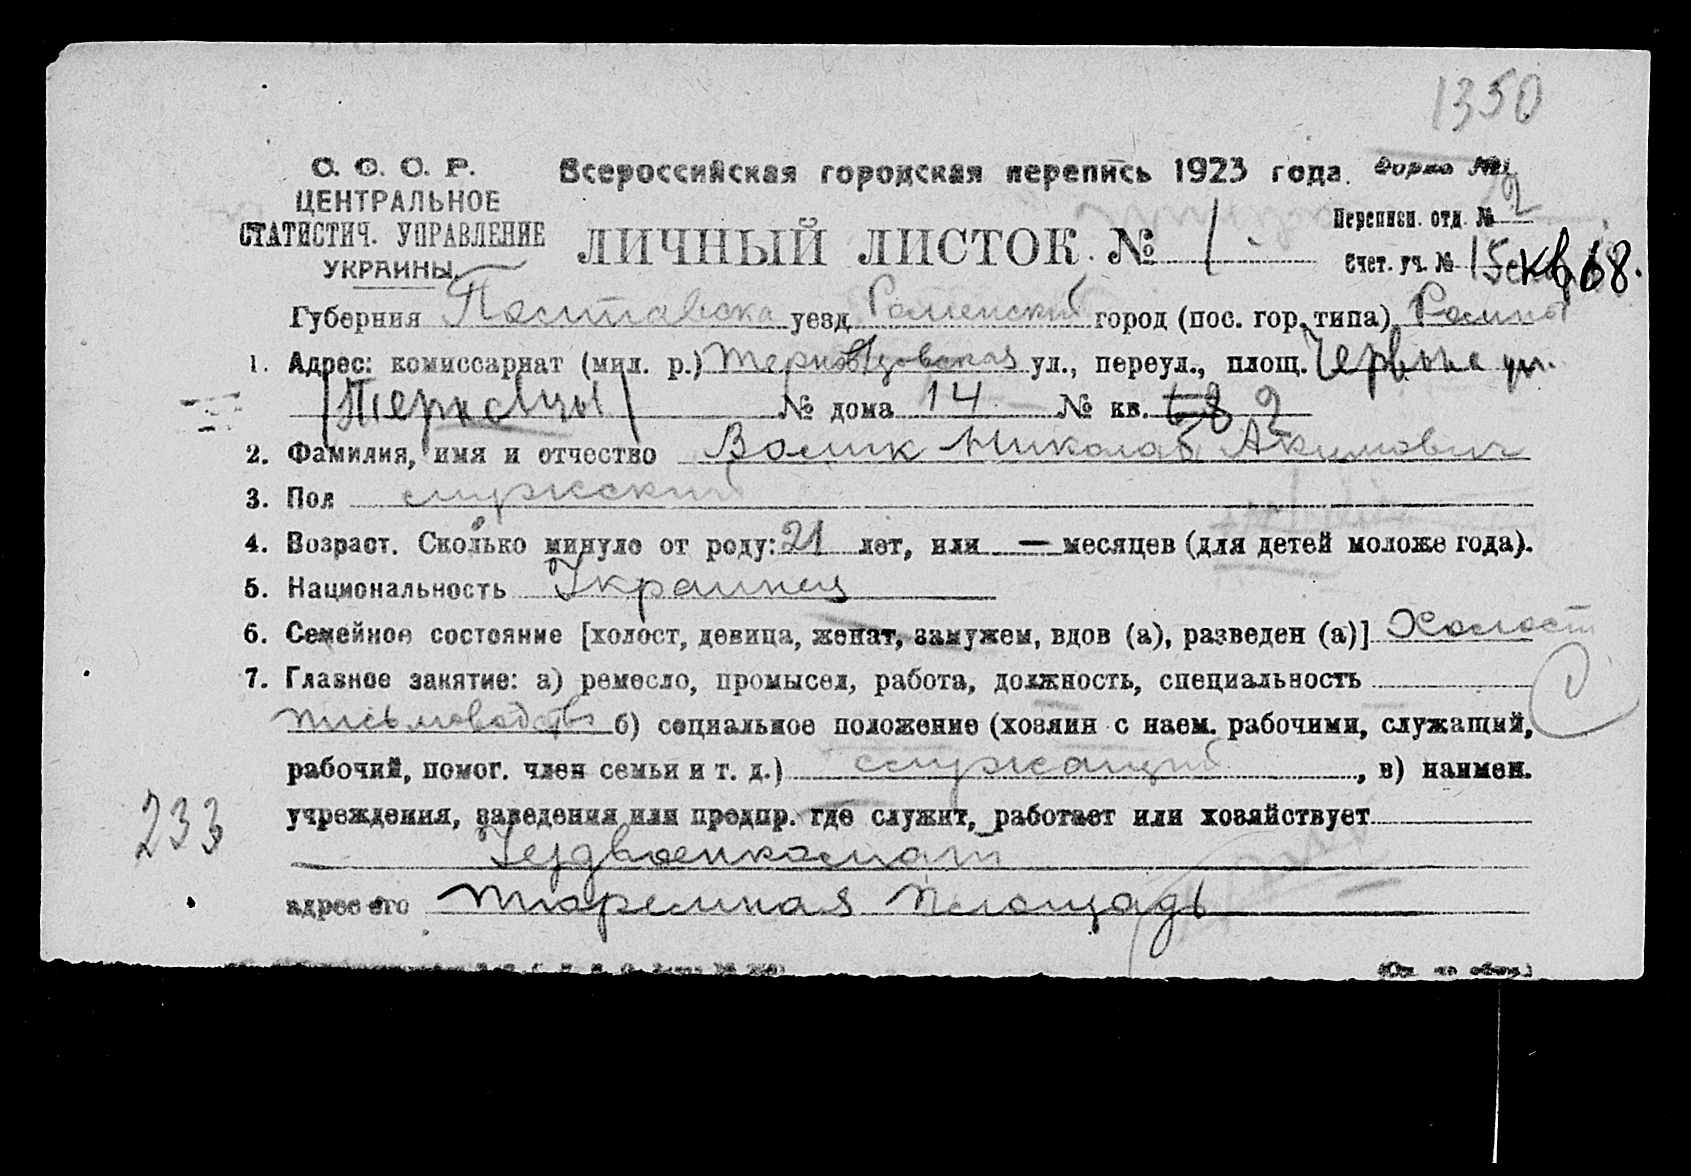 1350
С. С. С. Р.
ЦЕНТРАЛЬНОЕ
СТАТИСТИЧ. УПРАВЛЕНИЕ
УКРАИНЫ.
Всероссийская городская перепись 1923 года. Форма №1
ЛИЧНЫЙ ЛИСТОК № 1
Переписн. отд. № 2
Счет. уч. № 15 кв 68.
Губерния Полтавска уезд Роменский город (пос. гор. типа) Ромны
1. Адрес: комиссариат (мил. р.) ул., переул., площ. Червона ул.
№ дома 14 № кв. 68 2
2. Фамилия, имя и отчество Волик Николай Акимович
3. Пол мужский
4. Возраст. Сколько минуло от роду: 21 лет, или — месяцев (для детей моложе года).
5. Национальность Украинец
6. Семейное состояние [холост, девица, женат, замужем, вдов (а), разведен (а)] Холост
7. Главное занятие: а) ремесло, промысел, работа, должность, специальность
письмоводство б) социальное положение (хозяин с наем. рабочими, служащий,
рабочий, помог. член семьи и т. д.) служащий, в) наимен.
учреждения, заведения или предпр. где служит, работает или хозяйствует
233
Уездвоенкомат
адрес его Площадь